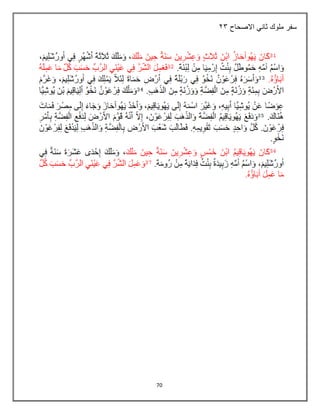 سفر ملوك ثاني الاصحاح ٢٣
³¹كَانَ يَهُوآحَازُ ابْنَ ثَلاَثٍ وَعِشْرِينَ سَنَةً حِينَ مَلَكَ، وَمَلَكَ ثَلاَثَةَ أَشْهُرٍ فِي أُورُشَلِيمَ،
وَاسْمُ أُمِّهِ حَمُوطَلُ بِنْتُ إِرْمِيَا مِنْ لِبْنَةَ. ³²فَعَمِلَ الشَّرَّ فِي عَيْنَيِ الرَّبِّ حَسَبَ كُلِّ مَا عَمِلَهُ
آبَاؤُهُ. ³³وَأَسَرَهُ فِرْعَوْنُ نَخْوُ فِي رَبْلَةَ فِي أَرْضِ حَمَاةَ لِئَلاَّ يَمْلِكَ فِي أُورُشَلِيمَ، وَغَرَّمَ
الأَرْضَ بِمِئَةِ وَزْنَةٍ مِنَ الْفِضَّةِ وَوَزْنَةٍ مِنَ الذَّهَبِ. ³⁴وَمَلَّكَ فِرْعَوْنُ نَخْوُ أَلِيَاقِيمَ بْنَ يُوشِيَّا
عِوَضًا عَنْ يُوشِيَّا أَبِيهِ، وَغَيَّرَ اسْمَهُ إِلَى يَهُويَاقِيمَ، وَأَخَذَ يَهُوآحَازَ وَجَاءَ إِلَى مِصْرَ فَمَاتَ
هُنَاكَ. ³⁵وَدَفَعَ يَهُويَاقِيمُ الْفِضَّةَ وَالذَّهَبَ لِفِرْعَوْنَ، إِلاَّ أَنَّهُ قَوَّمَ الأَرْضَ لِدَفْعِ الْفِضَّةِ بِأَمْرِ
فِرْعَوْنَ. كُلَّ وَاحِدٍ حَسَبَ تَقْوِيمِهِ. فَطَالَبَ شَعْبَ الأَرْضِ بِالْفِضَّةِ وَالذَّهَبِ لِيَدْفَعَ لِفِرْعَوْنَ
نَخْوَ.
³⁶كَانَ يَهُويَاقِيمُ ابْنَ خَمْسٍ وَعِشْرِينَ سَنَةً حِينَ مَلَكَ، وَمَلَكَ إِحْدَى عَشَرَةَ سَنَةً فِي
أُورُشَلِيمَ، وَاسْمُ أُمِّهِ زَبِيدَةُ بِنْتُ فِدَايَةَ مِنْ رُومَةَ. ³⁷وَعَمِلَ الشَّرَّ فِي عَيْنَيِ الرَّبِّ حَسَبَ كُلِّ
مَا عَمِلَ آبَاؤُهُ.
70